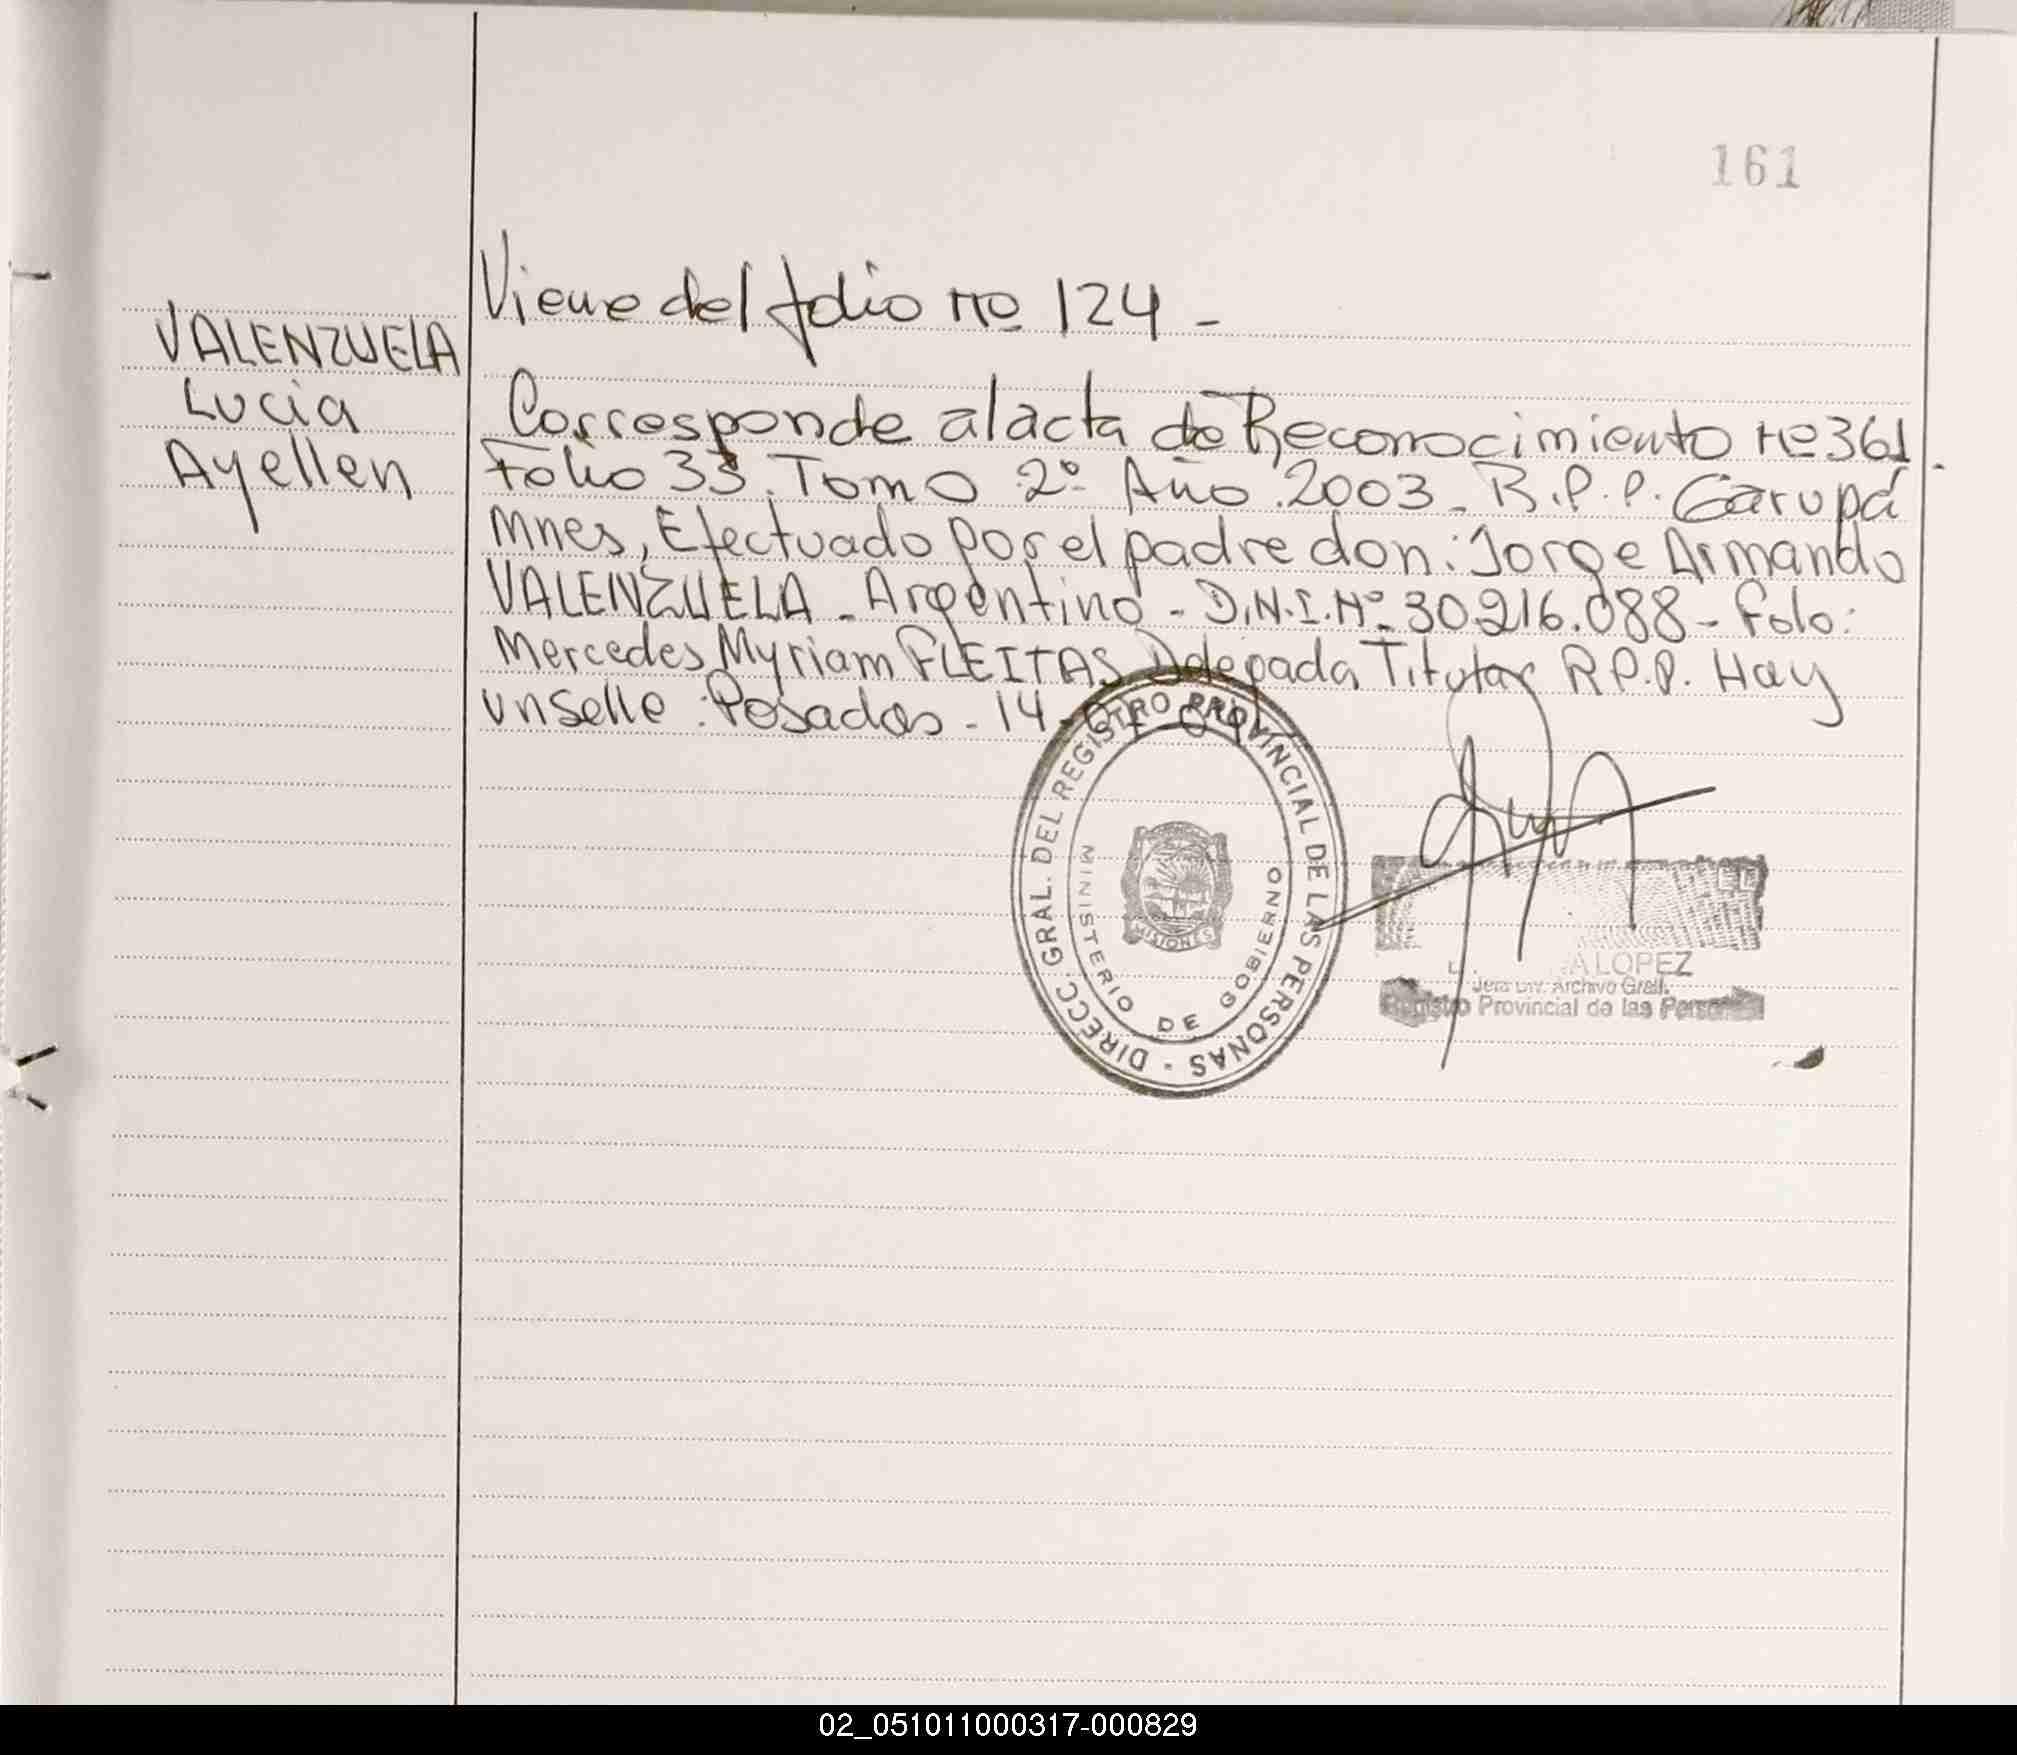 161
Viene del folio no 124 -
VALENZUELA
Lucia
Ayellen
Corresponde al acta de Reconocimiento no 361.
Folio 33. Tomo 2º Año 2003 - R.P.P. Garupá
Mnes, Efectuado por el padre don: Jorge Armando
VALENZUELA - Argentino - D.N.I. Nº 30.216.088 - Folo:
Mercedes Myriam FLEITAS Delegada Titular R.P.P. Hay
un Selle. Posadas - 14
DIRECC. GRAL. DEL REGISTRO PROVINCIAL DE LAS PERSONAS -
MINISTERIO DE GOBIERNO
MISIONES
LOPEZ
Jefa Div. Archivo Gral.
Registro Provincial de las Personas
02_051011000317-000829